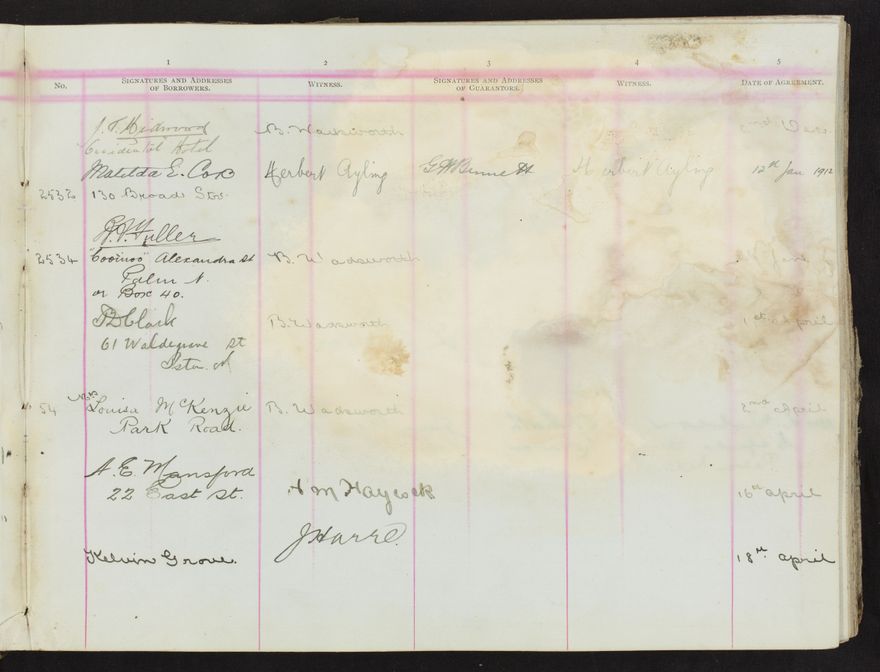 1 2 3 4 5
No. Signatures and Addresses of Borrowers. Witness. Signatures and Addresses of Guarantors. Witness. Date of Agreement.
B. Wadsworth 2nd Dec.
Occidental Hotel
Matilda E. Cox Herbert Ayling Herbert Ayling 12th Jan 1912
2532 130 Broad St.
Fuller
2534 Alexandra St B. Wadsworth
Palm N.
or Box 40.
Clark B. Wadsworth 1st April
61 Waldegrave St
54 Mrs Louisa McKenzie B. Wadsworth 2nd April
Park Road.
A. E. Mansford
22 East St. H M Haycock 16th april
J Harre
Kelvin Grove. 18th april